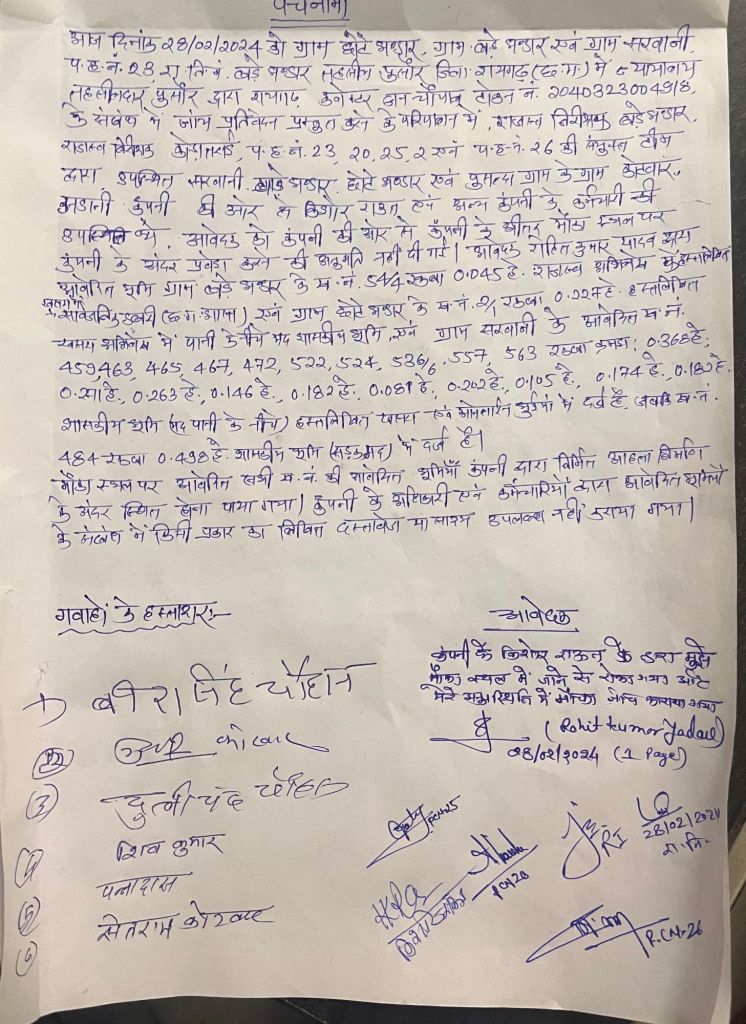 पंचनामा
आज दिनांक 28/02/2024 को ग्राम छोटे भण्डार, ग्राम बड़े भण्डार एवं ग्राम सरवानी,
प.ह.नं. 23 रा.नि.मं. बड़े भण्डार तहसील पुसौर जिला रायगढ़ (छ.ग.) में न्यायालय
तहसीलदार पुसौर द्वारा रायगढ़ कलेक्टर जन चौपाल टोकन नं. 2040323004918
के संबंध में जांच प्रतिवेदन प्रस्तुत करने के परिपालन में, राजस्व निरीक्षक बड़े भण्डार,
राजस्व निरीक्षक कोड़ातराई, प.ह.नं. 23, 20, 25, 2 एवं प.ह.नं. 26 की संयुक्त टीम
द्वारा उपस्थित सरवानी, बड़े भण्डार, छोटे भण्डार एवं ग्राम के ग्राम कोटवार,
अडानी कंपनी की ओर से किशोर राऊत एवं अन्य कंपनी के कर्मचारी की
उपस्थिति में, आवेदक को कंपनी की ओर से कंपनी के भीतर मौका स्थल पर
कंपनी के अंदर प्रवेश करने की अनुमति नहीं दी गई। आवेदक रोहित कुमार यादव द्वारा
आवेदित भूमि ग्राम बड़े भण्डार के ख.नं. 54/4 रकबा 0.045 हे. राजस्व अभिलेख हस्तलिखित
(छ.ग. शासन) एवं ग्राम छोटे भण्डार के ख.नं. रकबा 0.227 हे. हस्तलिखित
खसरा अभिलेख में पानी के नीचे मद शासकीय भूमि, एवं ग्राम सरवानी के आवेदित ख.नं.
459, 463, 465, 467, 472, 522, 524, 536/6, 557, 563 रकबा क्रमशः 0.368 हे.,
0.211 हे., 0.263 हे., 0.146 हे., 0.182 हे., 0.081 हे., 0.202 हे., 0.105 हे., 0.174 हे., 0.182 हे.
शासकीय भूमि (मद पानी के नीचे) हस्तलिखित खसरा एवं ऑनलाईन भुईयां में दर्ज है, जबकि ख.नं.
484 रकबा 0.498 हे. शासकीय भूमि (सड़क मद) में दर्ज है।
मौका स्थल पर आवेदित सभी ख.नं. की आवेदित भूमियाँ कंपनी द्वारा निर्मित अहाता निर्माण
के अंदर स्थित होना पाया गया। कंपनी के अधिकारी एवं कर्मचारियों द्वारा आवेदित भूमियों
के संबंध में किसी प्रकार का लिखित दस्तावेज या साक्ष्य उपलब्ध नहीं कराया गया।
गवाहों के हस्ताक्षर :-
बोरा सिंह चौहान
कोटवार
③ दुलीचंद चौहान
④ शिव कुमार
⑤ पन्नादास
⑥ सेतराम कोटवार
आवेदक
कंपनी के किशोर राऊत के द्वारा मुझे
मौका स्थल में जाने से रोका गया और
मेरे में मौका जांच कराया गया
(Rohit kumar Yadav)
28/02/2024 (1 Page)
28/02/2024
रा.नि.
RI
P.C.N-26